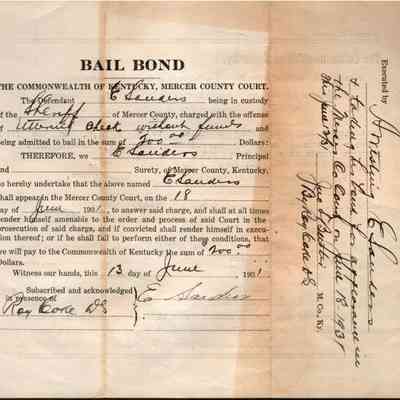 BAIL BOND
THE COMMONWEALTH OF KENTUCKY, MERCER COUNTY COURT.
The Defendant E Sanders being in custody
of the Sheriff of Mercer County, charged with the offense
of Uttering Check without funds and
being admitted to bail in the sum of 200.00 Dollars:
THEREFORE, we E Sanders Principal
and Surety, of Mercer County, Kentucky,
do hereby undertake that the above named E Sanders
shall appear in the Mercer County Court, on the 18
day of June 1931, to answer said charge, and shall at all times
render himself amenable to the order and process of said Court in the
prosecution of said charge, and if convicted shall render himself in execu-
tion thereof; or if he shall fail to perform either of these conditions, that
we will pay to the Commonwealth of Kentucky the sum of 200.00
Dollars.
Witness our hands, this 13 day of June 1931
Subscribed and acknowledged
in presence of
Ray Cone DS
E Sanders
Executed by
E Sanders
& taking his bond for appearance in
the Mercer Co Court on June 18 1931
this June
By Ray Cone DS
M. Co. Ky.